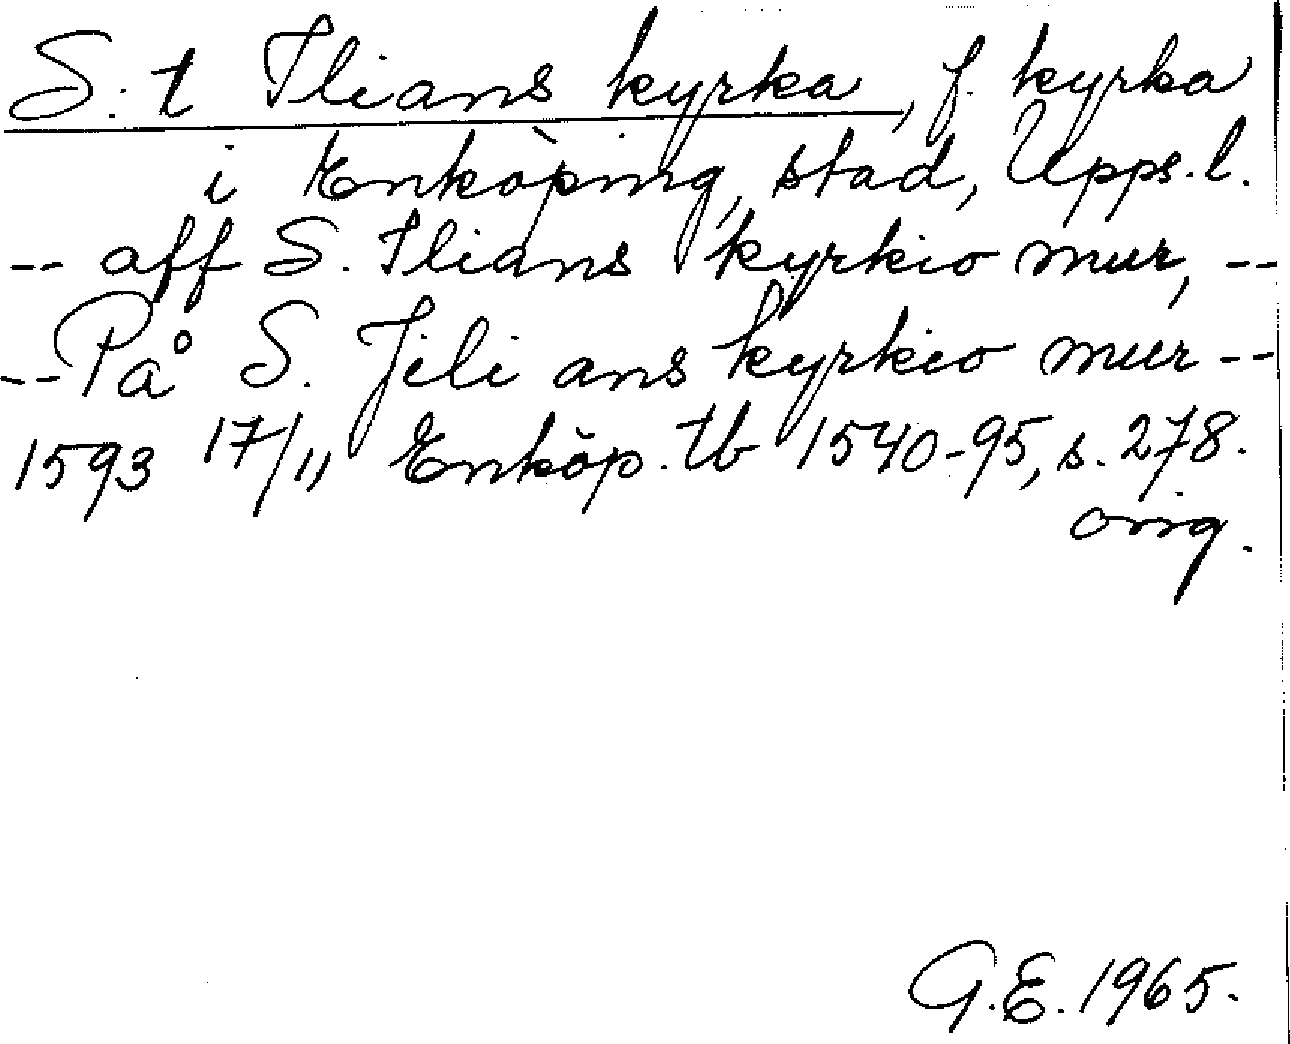 S:t Ilians kyrka, f. kyrka
i Enköping, stad, Upps. l.
-- aff S. Ilians kyrkio mur, --
-- På S. Jili ans kyrkio mur --
1593 17/11 Enköp. tb 1540-95, s. 278.
orig.
G.E. 1965.